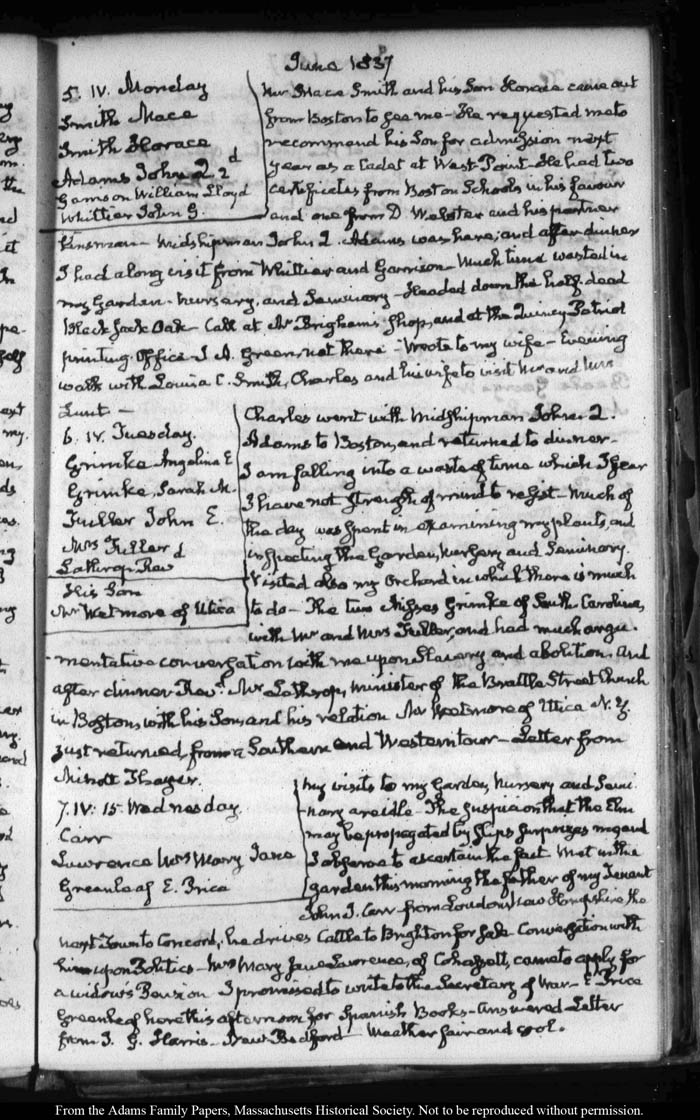 June 1837
5. IV. Monday
Smith Mace
Smith Horace
Adams John Q. 2d
Garrison William Lloyd
Whittier John G.
Mr Mace Smith and his Son Horace came out
from Boston to see me— He requested me to
recommend his Son for admission next
year as a Cadet at West-Point. He had two
certificates from Boston Schools in his favour
and one from D. Webster and his partner
Kinsman— Midshipman John Q. Adams was here; and after dinner
I had a long visit from Whittier and Garrison— Much time wasted in
my Garden, nursery, and Seminary— Headed down the half-dead
Black Jack Oak— Call at Mr Brigham's Shop, and at the Quincy Patriot
printing-Office J. A. Green, not there— Wrote to my wife— Evening
walk with Louisa C. Smith, Charles and his wife to visit Mr and Mrs
Lunt—
6. IV. Tuesday.
Grimke Angelina E
Grimke, Sarah M.
Fuller John E.
Mrs Fuller
Lathrop Revd
His Son
Mr Wetmore of Utica
Charles went with Midshipman John Q.
Adams to Boston, and returned to dinner—
I am falling into a waste of time which I fear
I have not strength of mind to resist— Much of
the day was spent in examining my plants, and
inspecting the Garden, nursery and Seminary.
Visited also my Orchard in which there is much
to do— The two Misses Grimke of South Carolina,
with Mr and Mrs Fuller, and had much argu-
mentative conversation with me upon Slavery and abolition. And
after dinner Revd. Mr Lothrop, minister of the Brattle Street Church
in Boston, with his Son, and his relation Mr Wetmore of Utica N. Y.
just returned from a Southern and Western tour— Letter from
Minott Thayer.
7. IV: 15. Wednesday.
Carr
Lawrence Mrs Mary Jane
Greenleaf E. Price
My visits to my Garden, Nursery and Semi-
nary are idle— The suspicion that the Elm
may be propagated by slips surprizes me and
I observe to ascertain the fact. Met in the
garden this morning the father of my Tenant
John J. Carr from Loudon New Hampshire the
next Town to Concord, he drives Cattle to Brighton for sale. Conversation with
him upon Politics— Mrs Mary Jane Lawrence, of Cohassett, came to apply for
a widows Pension. I promised to write to the Secretary of War— E. Price
Greenleaf here this afternoon for Spanish Books— Answered Letter
from J. G. Harris— New Bedford— Weather fair and cool.
From the Adams Family Papers, Massachusetts Historical Society. Not to be reproduced without permission.